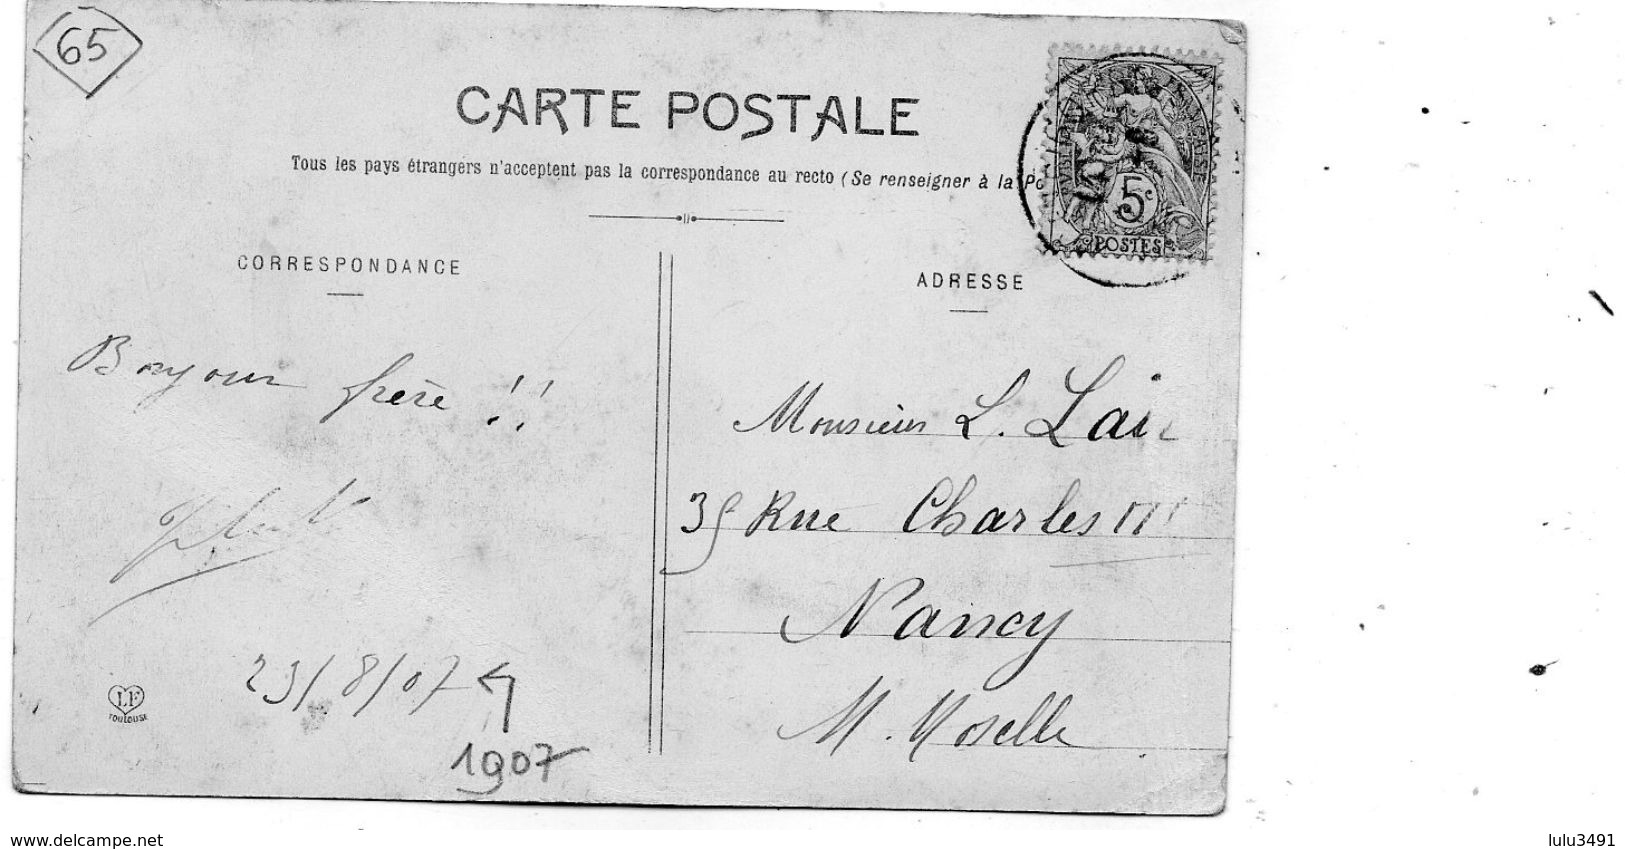 65
CARTE POSTALE
Tous les pays étrangers n'acceptent pas la correspondance au recto (Se renseigner à la Po
RÉPUBLIQUE FRANÇAISE
5c
POSTES
CORRESPONDANCE
ADRESSE
Bonjour frère !!
23/8/07
1907
LF
TOULOUSE
Monsieur L. Lair
35 Rue Charles III
Nancy
M. Moselle
www.delcampe.net
lulu3491